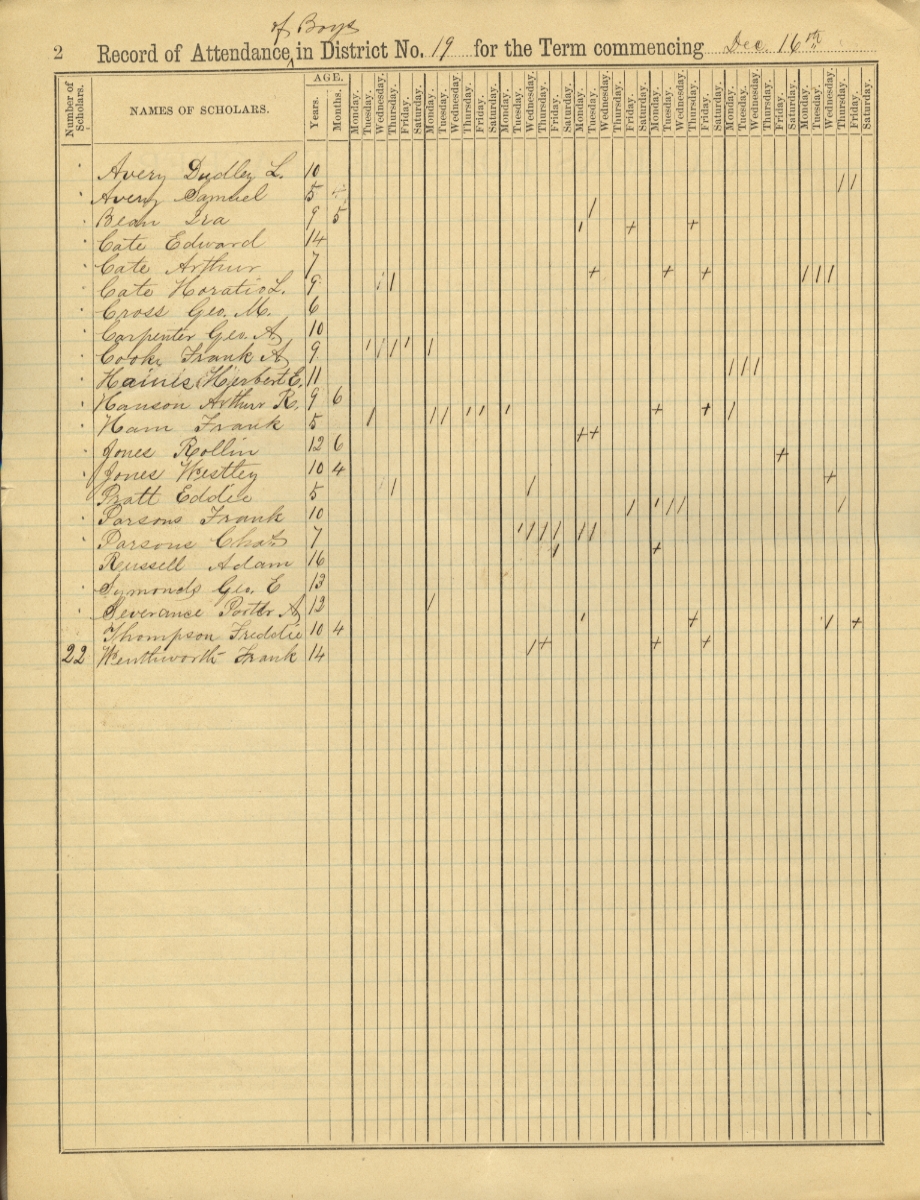 of Boys
2 Record of Attendance in District No. 19 for the Term commencing Dec. 16th
Number of Scholars. NAMES OF SCHOLARS. AGE. Years. Months. Monday. Tuesday. Wednesday. Thursday. Friday. Saturday. Monday. Tuesday. Wednesday. Thursday. Friday. Saturday. Monday. Tuesday. Wednesday. Thursday. Friday. Saturday. Monday. Tuesday. Wednesday. Thursday. Friday. Saturday. Monday. Tuesday. Wednesday. Thursday. Friday. Saturday. Monday. Tuesday. Wednesday. Thursday. Friday. Saturday. Monday. Tuesday. Wednesday. Thursday. Friday. Saturday.
Avery Dudley L. 10
Avery Samuel 5 4
Bean Ira 9 5
Cate Edward 14
Cate Arthur 7
Cate Horatio L. 9
Cross Geo. M. 6
Carpenter Geo. A 10
Cook Frank A 9
Haines Herbert E. 11
Hanson Arthur R. 9 6
Ham Frank 5
Jones Rollin 12 6
Jones Westley 10 4
Pratt Eddie 5
Parsons Frank 10
Parsons Chas 7
Russell Adam 16
Symonds Geo. E 13
Severance Porter A 12
Thompson Fredstie 10 4
22 Wenthworth Frank 14